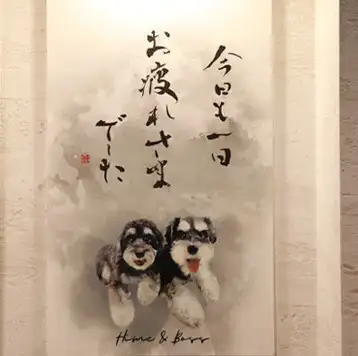 今日も一日
お疲れさま
でした
Hime & Boss